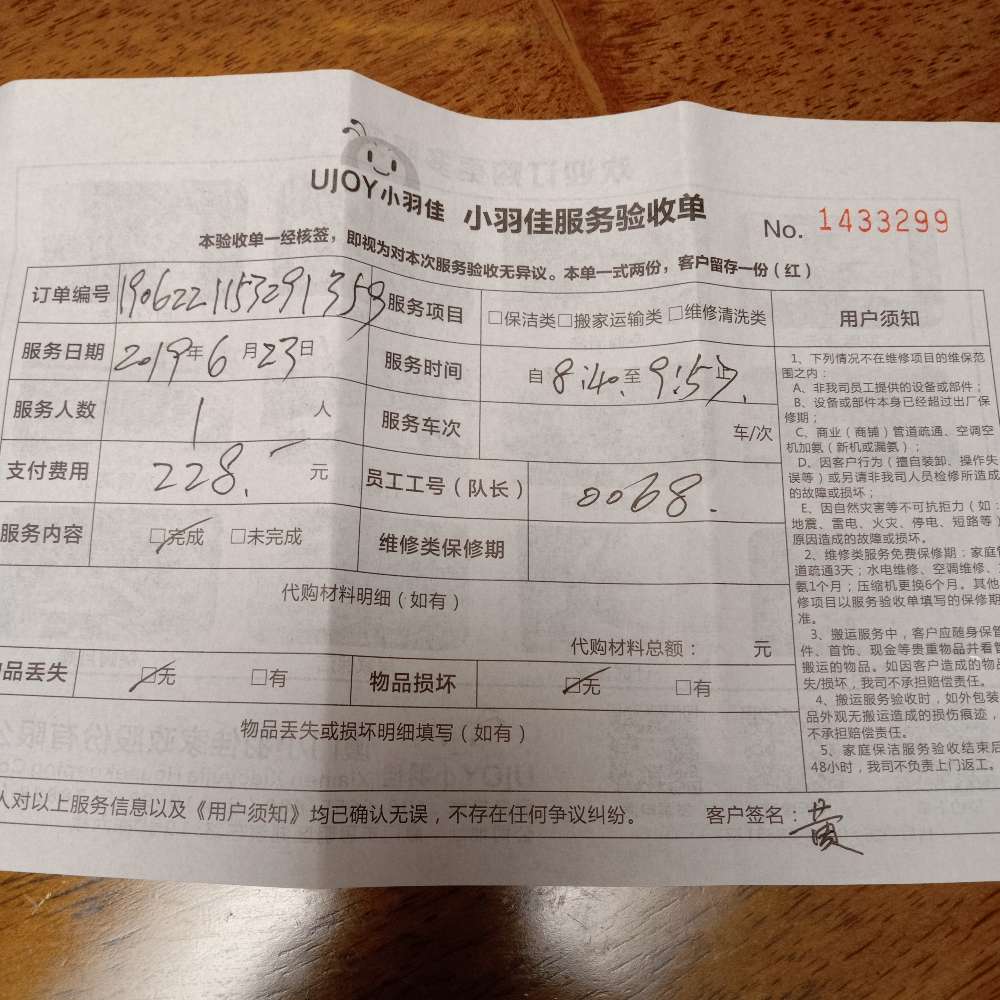 UJOY小羽佳 小羽佳服务验收单 No. 1433299
本验收单一经核签，即视为对本次服务验收无异议。本单一式两份，客户留存一份（红）
订单编号 1906221153291359 服务项目 □保洁类□搬家运输类 □维修清洗类
服务日期 2019年6月23日 服务时间 自8:40.至9:57.止
服务人数 1 人 服务车次 车/次
支付费用 228.- 元 员工工号（队长） 0068.
服务内容 □完成 □未完成 维修类保修期
代购材料明细（如有）
代购材料总额： 元
品丢失 □无 □有 物品损坏 □无 □有
物品丢失或损坏明细填写（如有）
人对以上服务信息以及《用户须知》均已确认无误，不存在任何争议纠纷。 客户签名：黄
用户须知
1、下列情况不在维修项目的维保范
围之内：
A、非我司员工提供的设备或部件；
B、设备或部件本身已经超过出厂保
修期；
C、商业（商铺）管道疏通、空调空
机加氨（新机或漏氨）；
D、因客户行为（擅自装卸、操作失
误等）或另请非我司人员检修所造成
的故障或损坏；
E、因自然灾害等不可抗拒力（如：
地震、雷电、火灾、停电、短路等）
原因造成的故障或损坏。
2、维修类服务免费保修期：家庭管
道疏通3天；水电维修、空调维修、
氨1个月；压缩机更换6个月。其他
修项目以服务验收单填写的保修期
准。
3、搬运服务中，客户应随身保管
件、首饰、现金等贵重物品并看管
搬运的物品。如因客户造成的物品
失/损坏，我司不承担赔偿责任。
4、搬运服务验收时，如外包装
品外观无搬运造成的损伤痕迹，
不承担赔偿责任。
5、家庭保洁服务验收结束后
48小时，我司不负责上门返工。